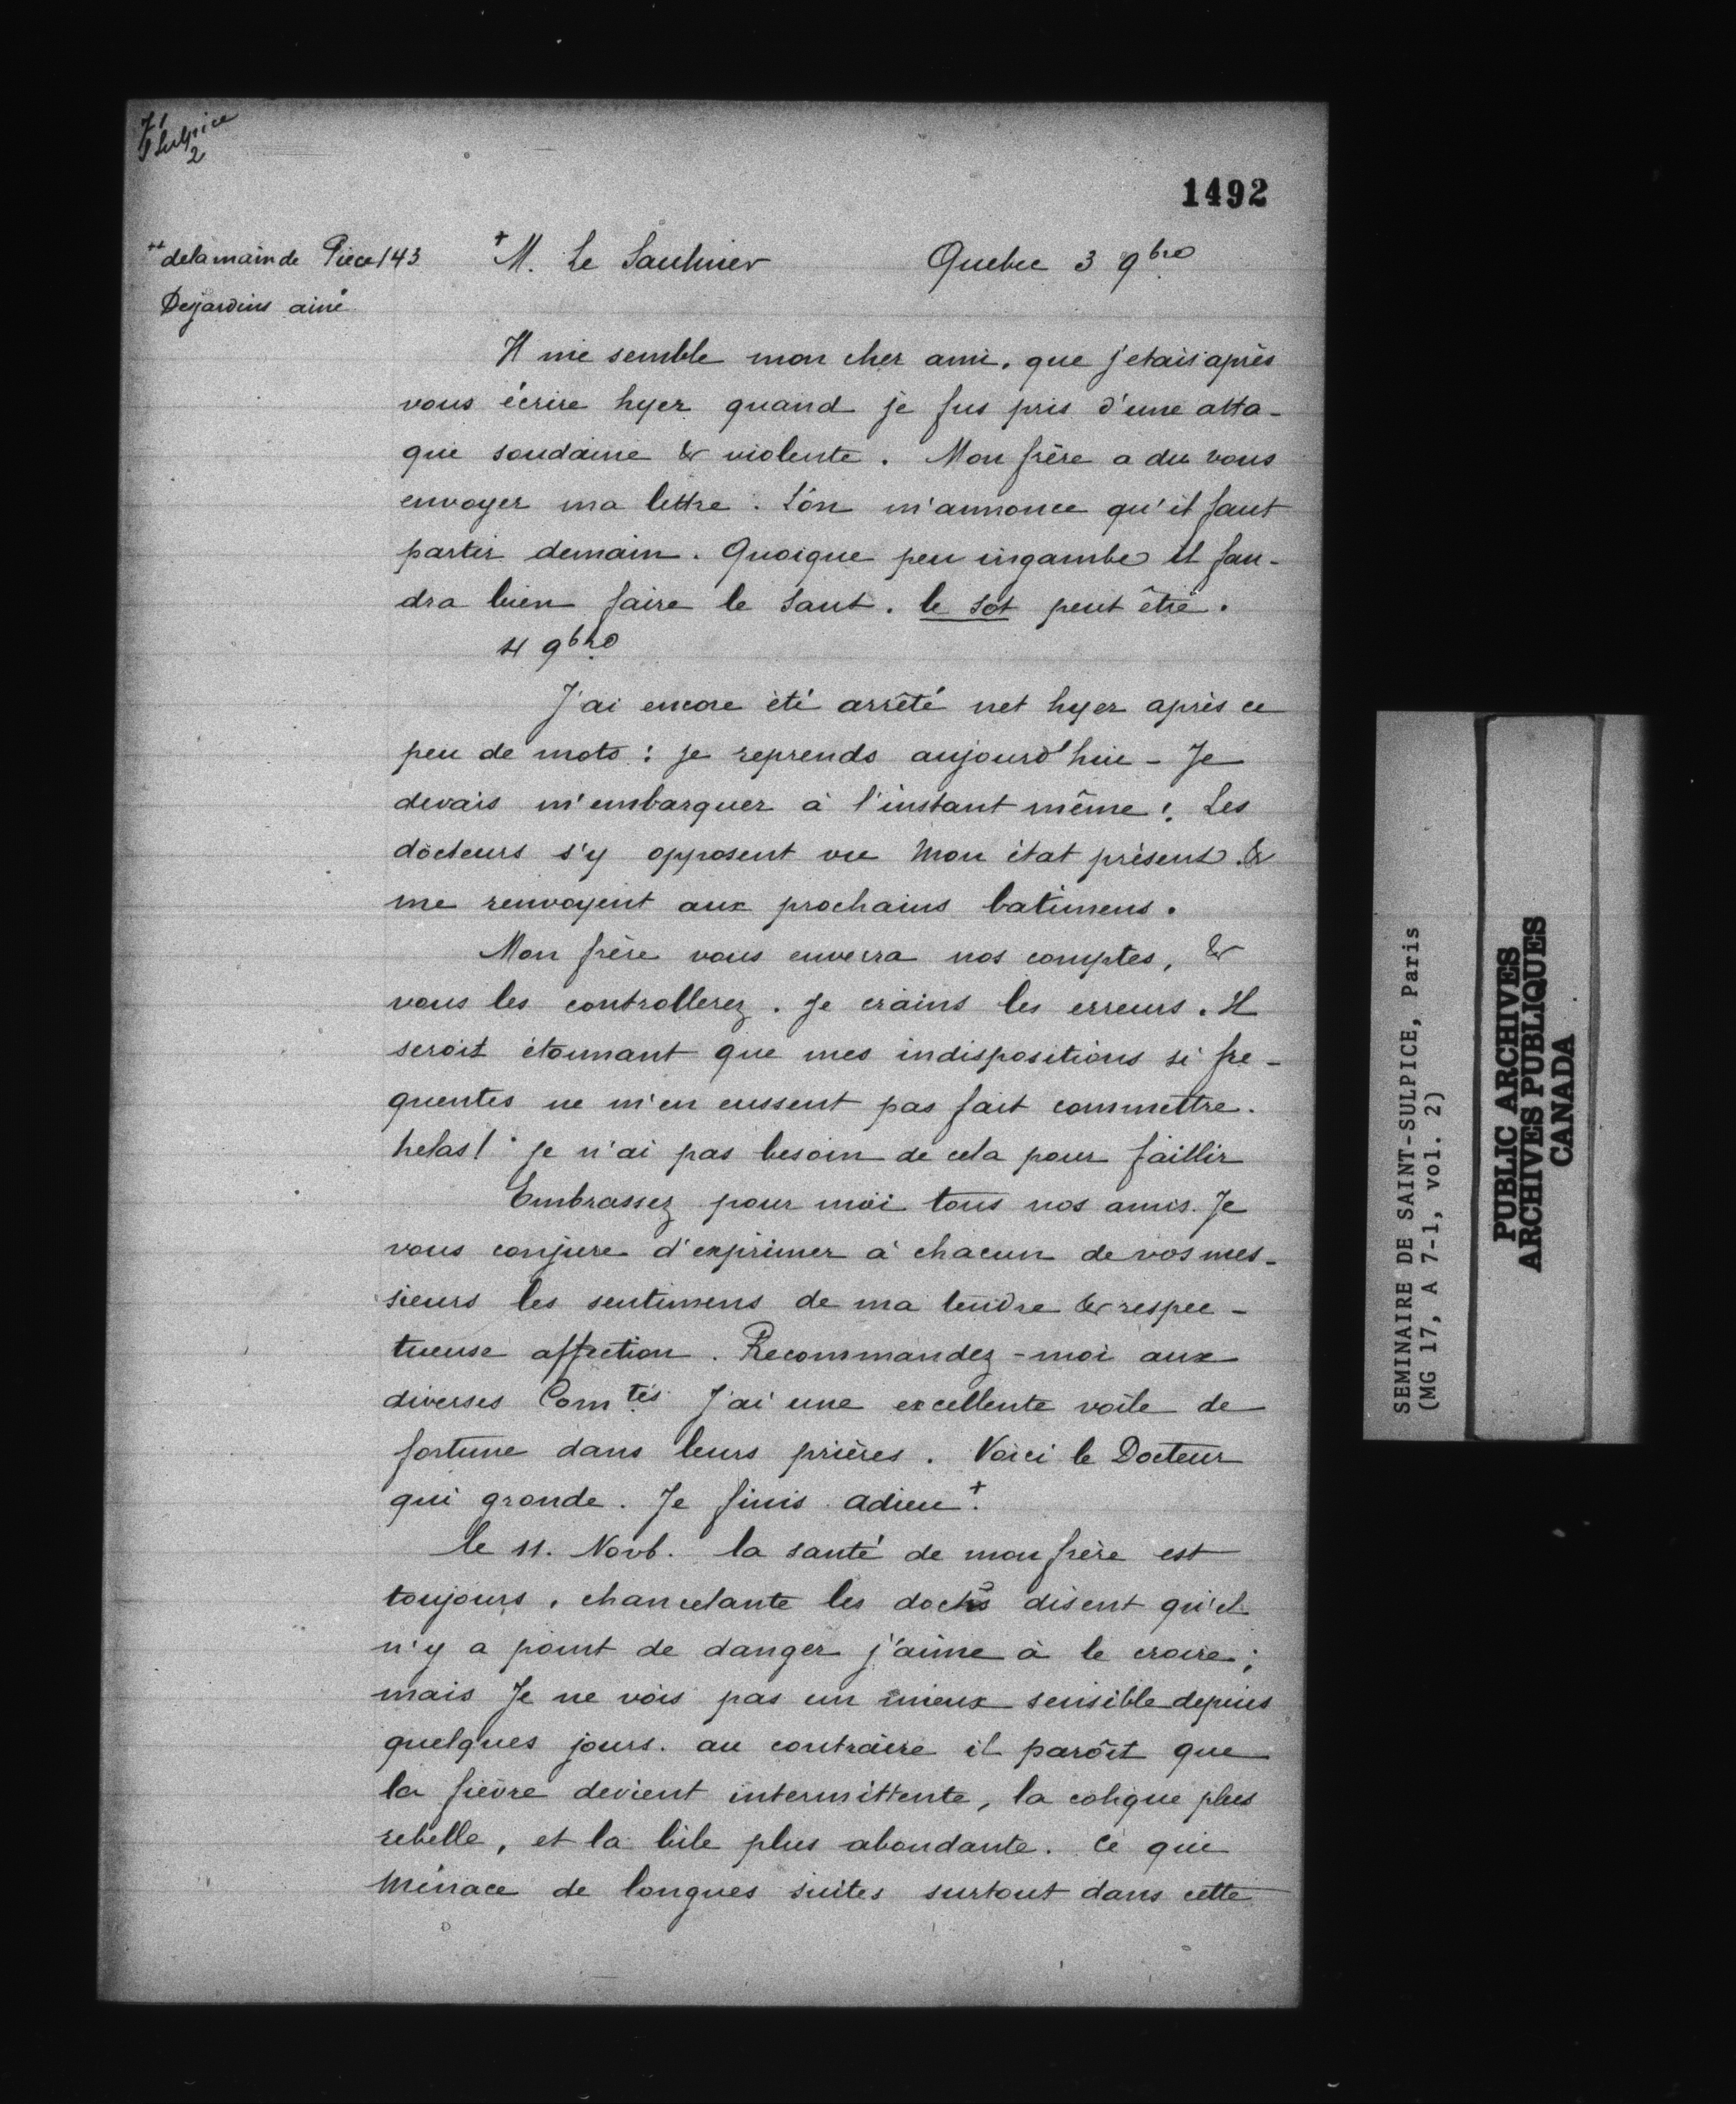 St Sulpice
2
1492
++ de la main de Pièce 143
Desjardins ainé
+ M. Le Saulnier Quebec 3 9bre
Il me semble mon cher ami, que j'etais après
vous écrire hyer quand je fus pris d'une atta-
que soudaine & violente. Mon frère a du vous
envoyer ma lettre. L'on m'annonce qu'il faut
partir demain. Quoique peu ingambe il fau-
dra bien faire le Saut. le sot peut être.
4 9bre
J'ai encore été arrêté net hyer après ce
peu de mots : je reprends aujourd'hui - Je
devais m'embarquer à l'instant même! Les
docteurs s'y opposent vu mon état présent &
me renvoyent aux prochains batimens.
Mon frère vous enverra nos comptes, &
vous les controllerez. Je crains les erreurs. Il
seroit étonnant que mes indispositions si fre-
quentes ne m'en eussent pas fait commettre.
helas! je n'ai pas besoin de cela pour faillir
Embrassez pour moi tous nos amis. Je
vous conjure d'exprimer à chacun de vos mes-
sieurs les sentimens de ma tendre & respec-
tueuse affection. Recommandez-moi aux
diverses Comtés J'ai une excellente voile de
fortune dans leurs prières. Voici le Docteur
qui gronde. Je finis adieu +.
le 11. Novb. la santé de mon frère est
toujours, chancelante les doctrs disent qu'il
n'y a point de danger j'aime à le croire;
mais Je ne vois pas un mieux sensible depuis
quelques jours. au contraire il paroît que
la fièvre devient intermittente, la colique plus
rebelle, et la bile plus abondante. Ce qui
ménace de longues suites surtout dans cette
SEMINAIRE DE SAINT-SULPICE, Paris
(MG 17, A 7-1, vol. 2)
PUBLIC ARCHIVES
ARCHIVES PUBLIQUES
CANADA